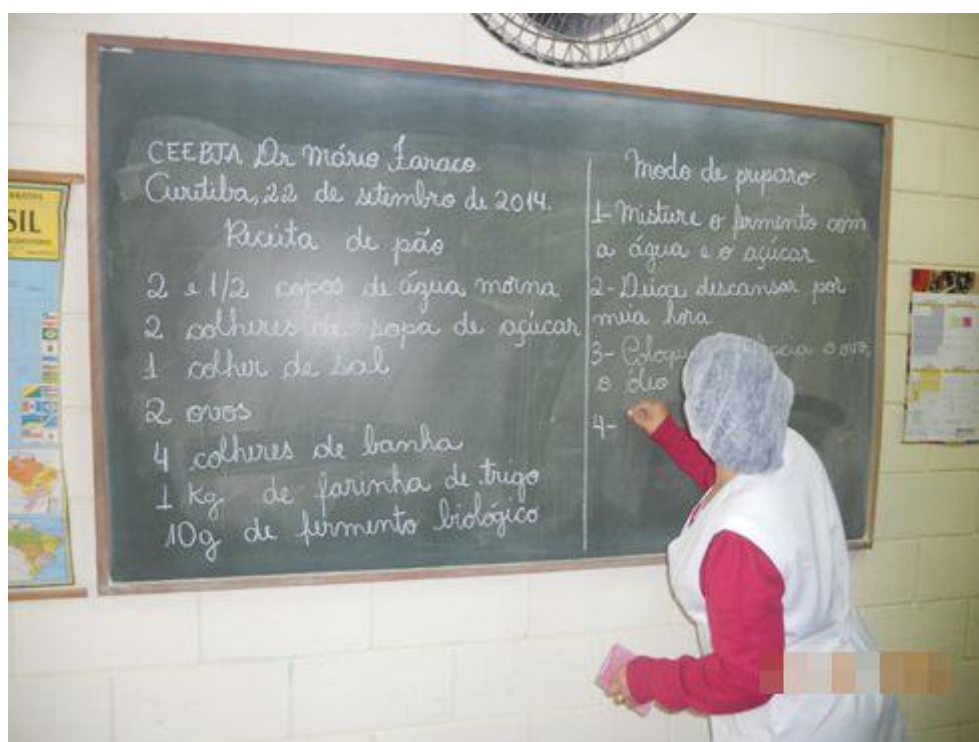 CEEBJA Dr Mário Faraco
Curitiba, 22 de setembro de 2014.
Receita de pão
2 e 1/2 copos de água morna
2 colheres de sopa de açúcar
1 colher de sal
2 ovos
4 colheres de banha
1 Kg de farinha de trigo
10g de fermento biológico
Modo de preparo
1- Misture o fermento com
a água e o açúcar
2- Deixe descansar por
meia hora
3- Coloque o ovo,
o óleo
4-
SIL